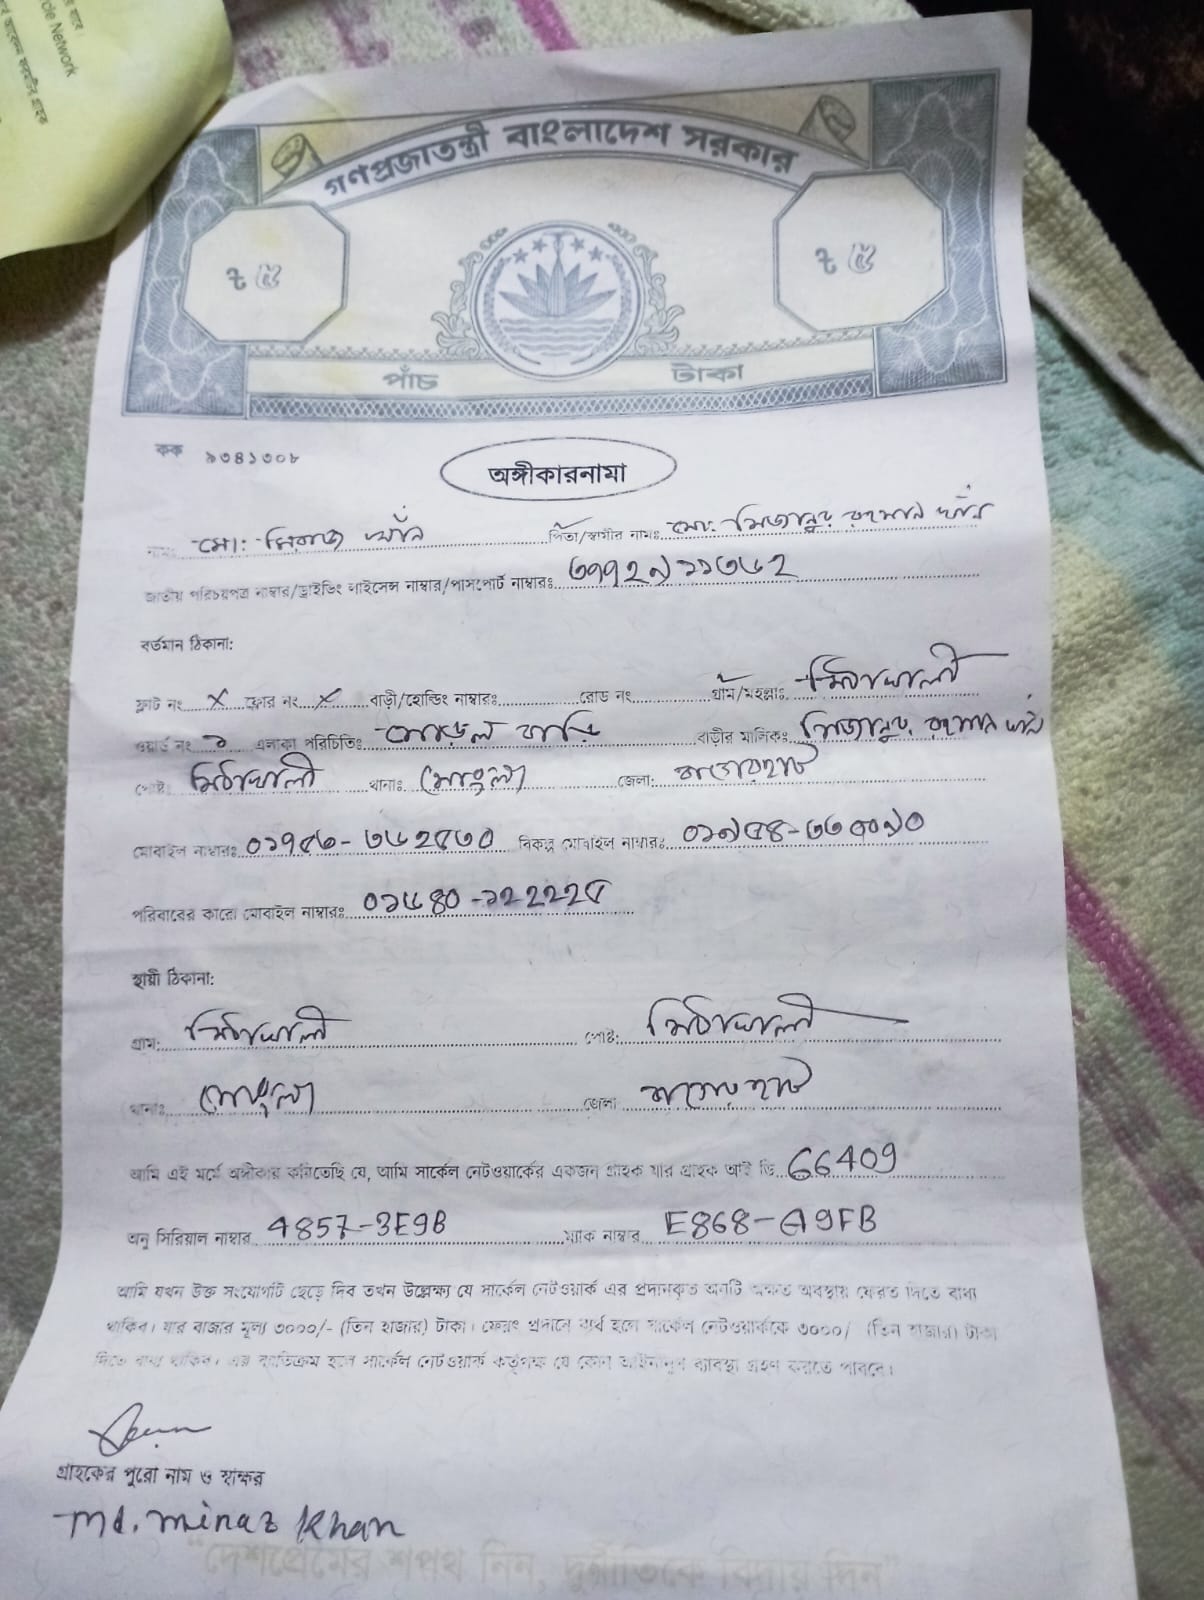 cle Network
গণপ্রজাতন্ত্রী বাংলাদেশ সরকার
৳ ৫ ৳ ৫
পাঁচ টাকা
কক ৯৩৪১৩০৮
অঙ্গীকারনামা
নাম: মো: মিরাজ খাঁন পিতা/স্বামীর নামঃ মো: মিজানুর রহমান খাঁন
জাতীয় পরিচয়পত্র নাম্বার/ড্রাইভিং লাইসেন্স নাম্বার/পাসপোর্ট নাম্বারঃ
বর্তমান ঠিকানা:
ফ্লাট নং X ফ্লোর নং X বাড়ী/হোল্ডিং নাম্বারঃ রোড নং গ্রাম/মহল্লাঃ মিঠাখালী
ওয়ার্ড নং ১ এলাকা পরিচিতিঃ বাড়ীর মালিকঃ মিজানুর রহমান খাঁন
পোষ্ট মিঠাখালী থানাঃ মোংলা জেলা: বাগেরহাট
মোবাইল নাম্বারঃ বিকল্প মোবাইল নাম্বারঃ
পরিবারের কারো মোবাইল নাম্বারঃ ০১৬৪০-১২২২২৫
স্থায়ী ঠিকানা:
গ্রাম: মিঠাখালী পোষ্ট: মিঠাখালী
থানাঃ মোংলা জেলা বাগেরহাট
আমি এই মর্মে অঙ্গীকার করিতেছি যে, আমি সার্কেল নেটওয়ার্কের একজন গ্রাহক যার গ্রাহক আই ডি 66409
অনু সিরিয়াল নাম্বার 4857-3E9B ম্যাক নাম্বার E868-A9FB
আমি যখন উক্ত সংযোগটি ছেড়ে দিব তখন উল্লেক্ষ্য যে সার্কেল নেটওয়ার্ক এর প্রদানকৃত অনটি অক্ষত অবস্থায় ফেরত দিতে বাধ্য
থাকিব। যার বাজার মূল্য ৩০০০/- (তিন হাজার) টাকা। ফেরৎ প্রদানে ব্যর্থ হলে সার্কেল নেটওয়ার্ককে ৩০০০/ (তিন হাজার) টাকা
দিতে বাধ্য থাকিব। এর ব্যতিক্রম হলে সার্কেল নেটওয়ার্ক কর্তৃপক্ষ যে কোন আইনানুগ ব্যবস্থা গ্রহণ করতে পারবে।
গ্রাহকের পুরো নাম ও স্বাক্ষর
Md. Minaz Khan
"দেশপ্রেমের শপথ নিন, দুর্নীতিকে বিদায় দিন"